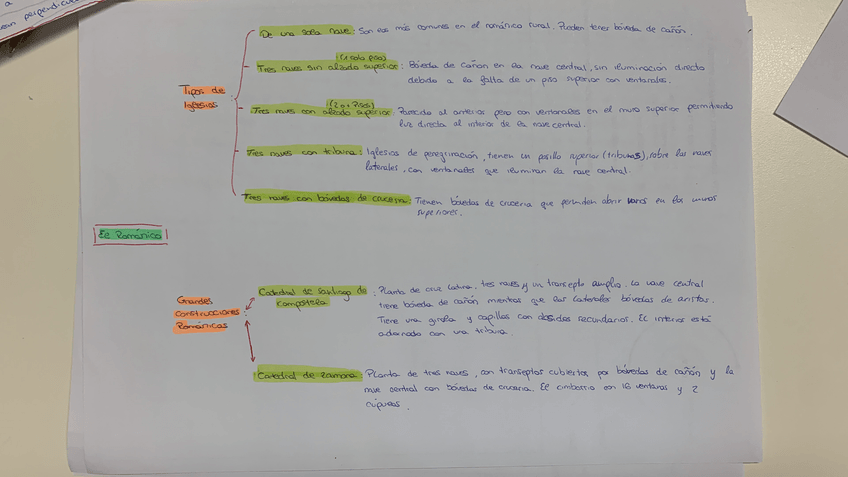 a
van perpendicu
De una sola nave: Son las más comunes en el románico rural. Pueden tener bóveda de cañón.
(1 solo piso)
Tres naves sin alzado superior: Bóveda de cañón en la nave central, sin iluminación directa
debido a la falta de un piso superior con ventanales.
Tipos de
Iglesias
(2 o + pisos)
Tres naves con alzado superior: Parecido al anterior pero con ventanales en el muro superior permitiendo
luz directa al interior de la nave central.
Tres naves con tribuna: Iglesias de peregrinación, tienen un pasillo superior (tribunas), sobre las naves
laterales, con ventanales que iluminan la nave central.
Tres naves con bóvedas de crucería: Tienen bóvedas de crucería que permiten abrir vanos en los muros
superiores.
El Románico
Grandes
construcciones
Románicas
Catedral de Santiago de
Compostela: Planta de cruz latina, tres naves y un transepto amplio. La nave central
tiene bóveda de cañón mientras que las laterales bóvedas de aristas.
Tiene una girola y capillas con ábsides secundarios. El interior está
adornado con una tribuna.
Catedral de Zamora: Planta de tres naves, con transeptos cubiertos por bóvedas de cañón y la
nave central con bóvedas de crucería. El cimborrio con 16 ventanas y 2
cúpulas.